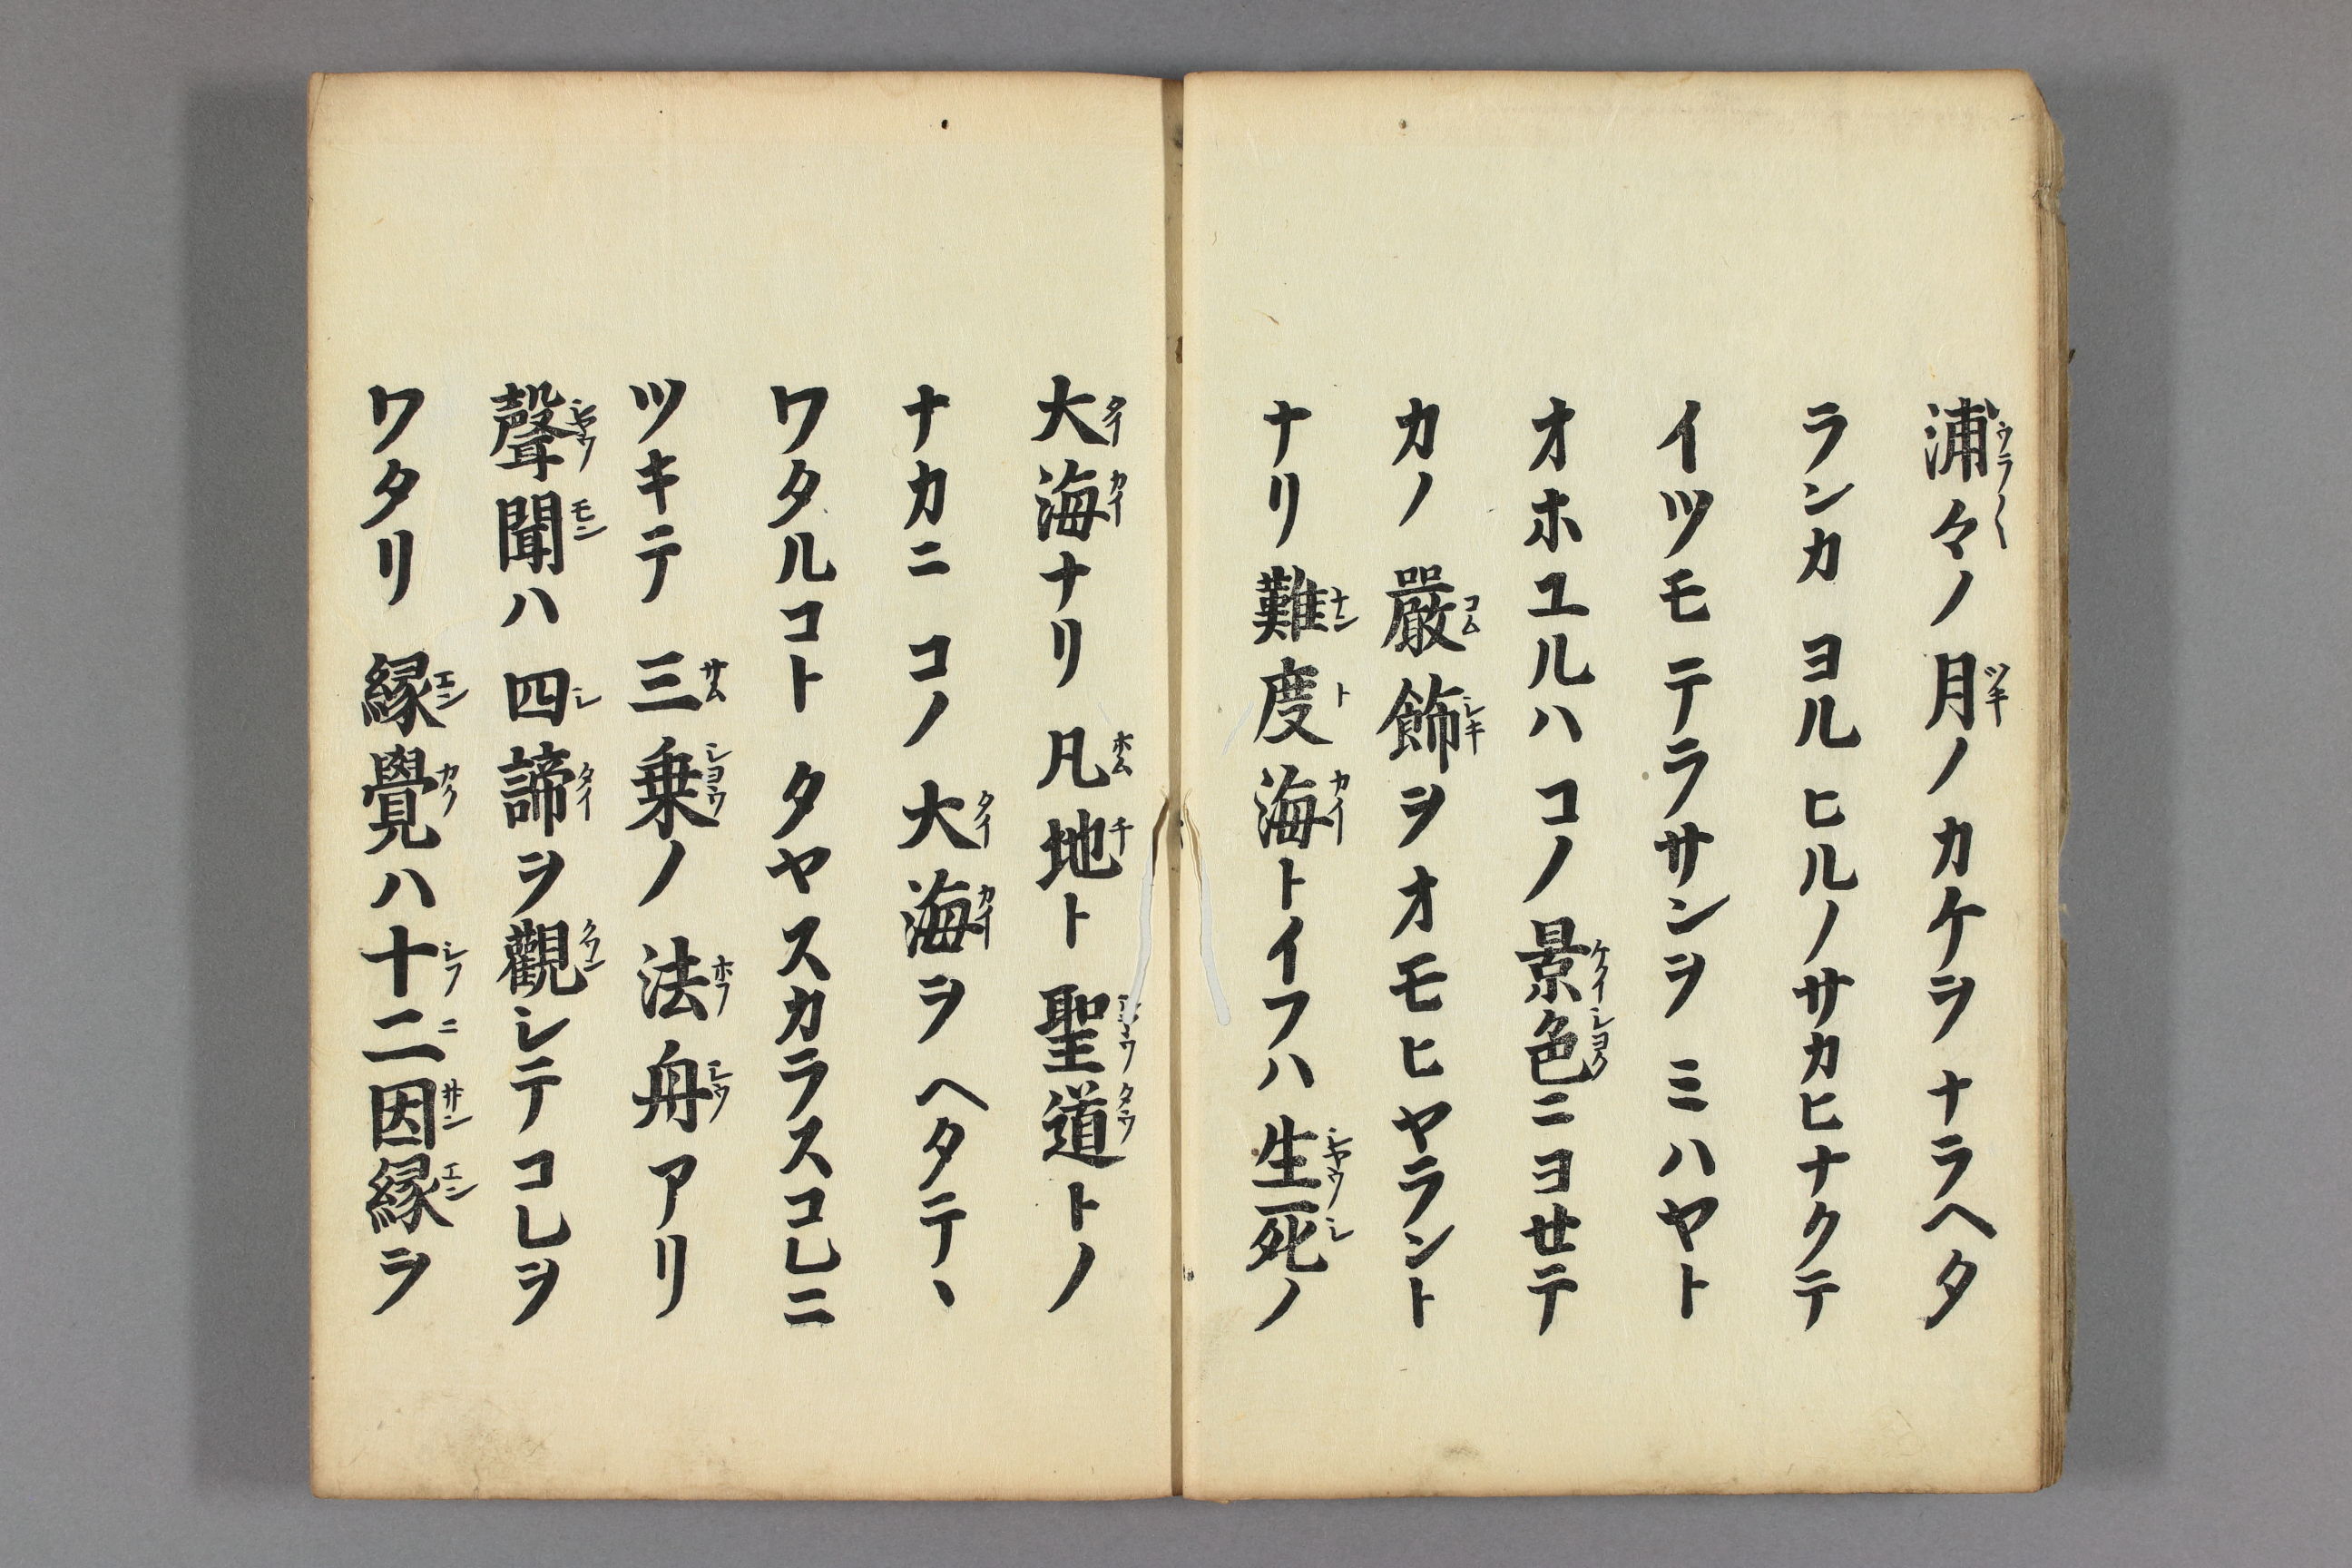 浦々ノ月ノカケヲナラヘタ
ランカヨルヒルノサカヒナクテ
イツモテラサンヲミハヤト
オホユルハコノ景色ニヨセテ
カノ嚴飾ヲオモヒヤラント
ナリ難度海トイフハ生死ノ
大海ナリ凡地ト聖道トノ
ナカニコノ大海ヲヘタテヽ
ワタルコトタヤスカラスコレニ
ツキテ三乗ノ法舟アリ
聲聞ハ四諦ヲ觀シテコレヲ
ワタリ縁覺ハ十二因縁ヲ